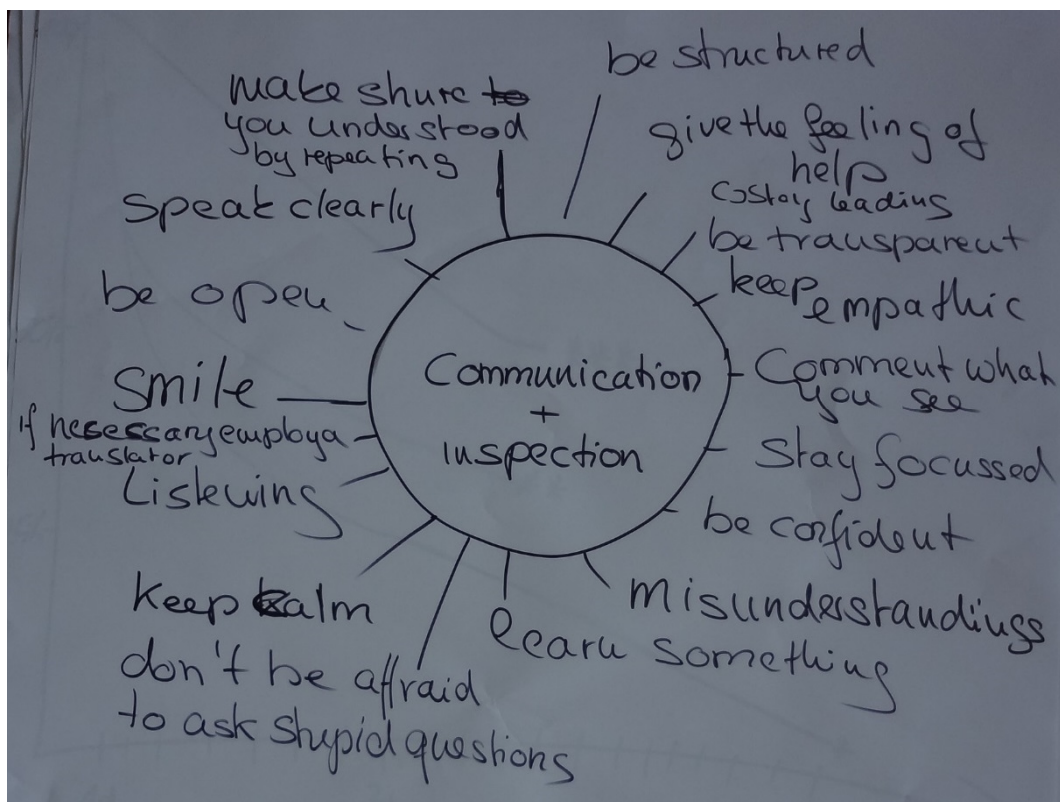 be structured
give the feeling of
help
stay leading
be transparent
keep empathic
Comment what
you see
stay focussed
be confident
misunderstandings
learn something
don't be affraid
to ask stupid questions
keep calm
Listening
if necessary employ a
translator
Smile
be open
Speak clearly
make shure
you understood
by repeating
Communication
+
inspection